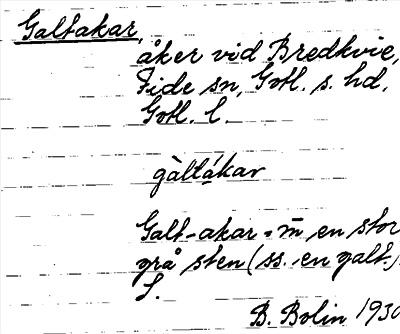 Galtakar,
åker vid Bredkvie,
Fide sn, Gotl. s. hd,
Gotl. l.
gàltákar
Galt-akar = m̄ en stor
grå sten (ss. en galt.).
S.
B. Bolin 1930